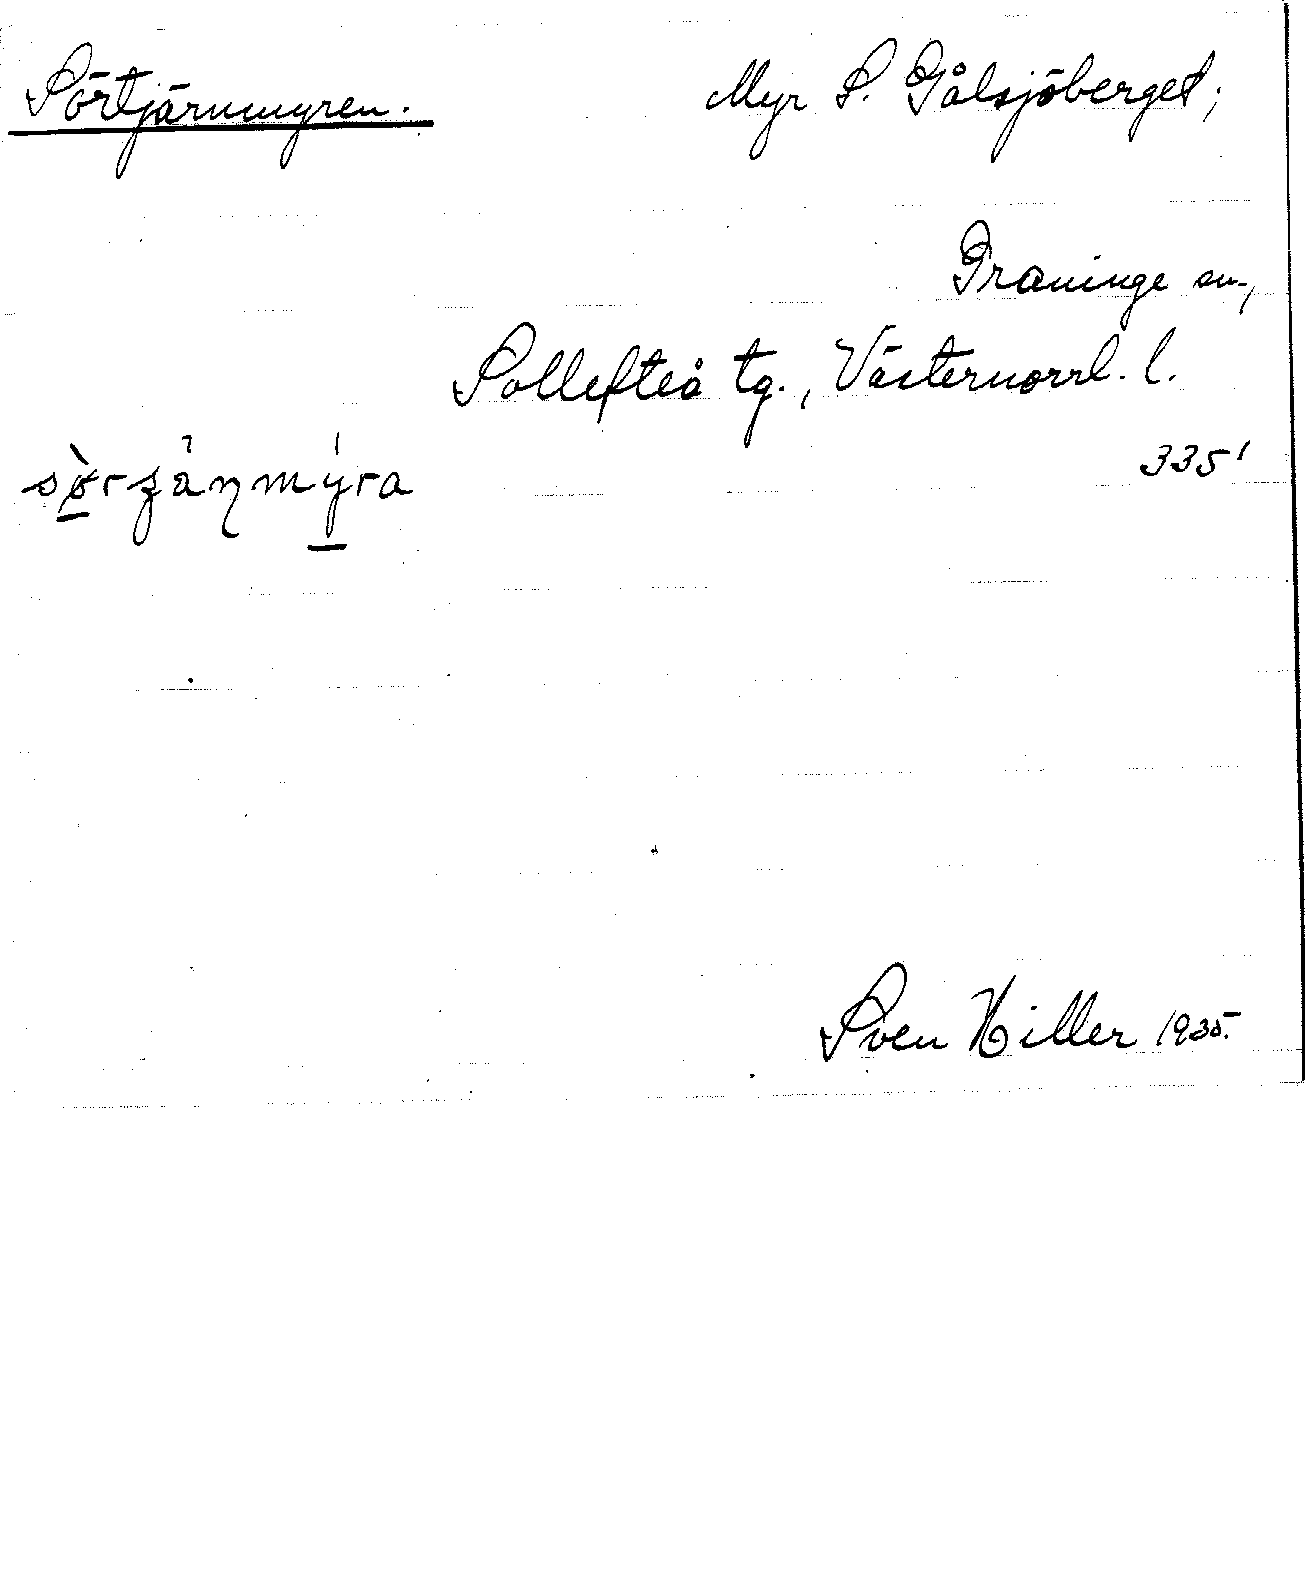 Sörtjärnmyren. Myr S. Gålsjöberget;
Graninge sn.,
Sollefteå tg., Västernorrl. l.
335'
Sven Hiller 1935.